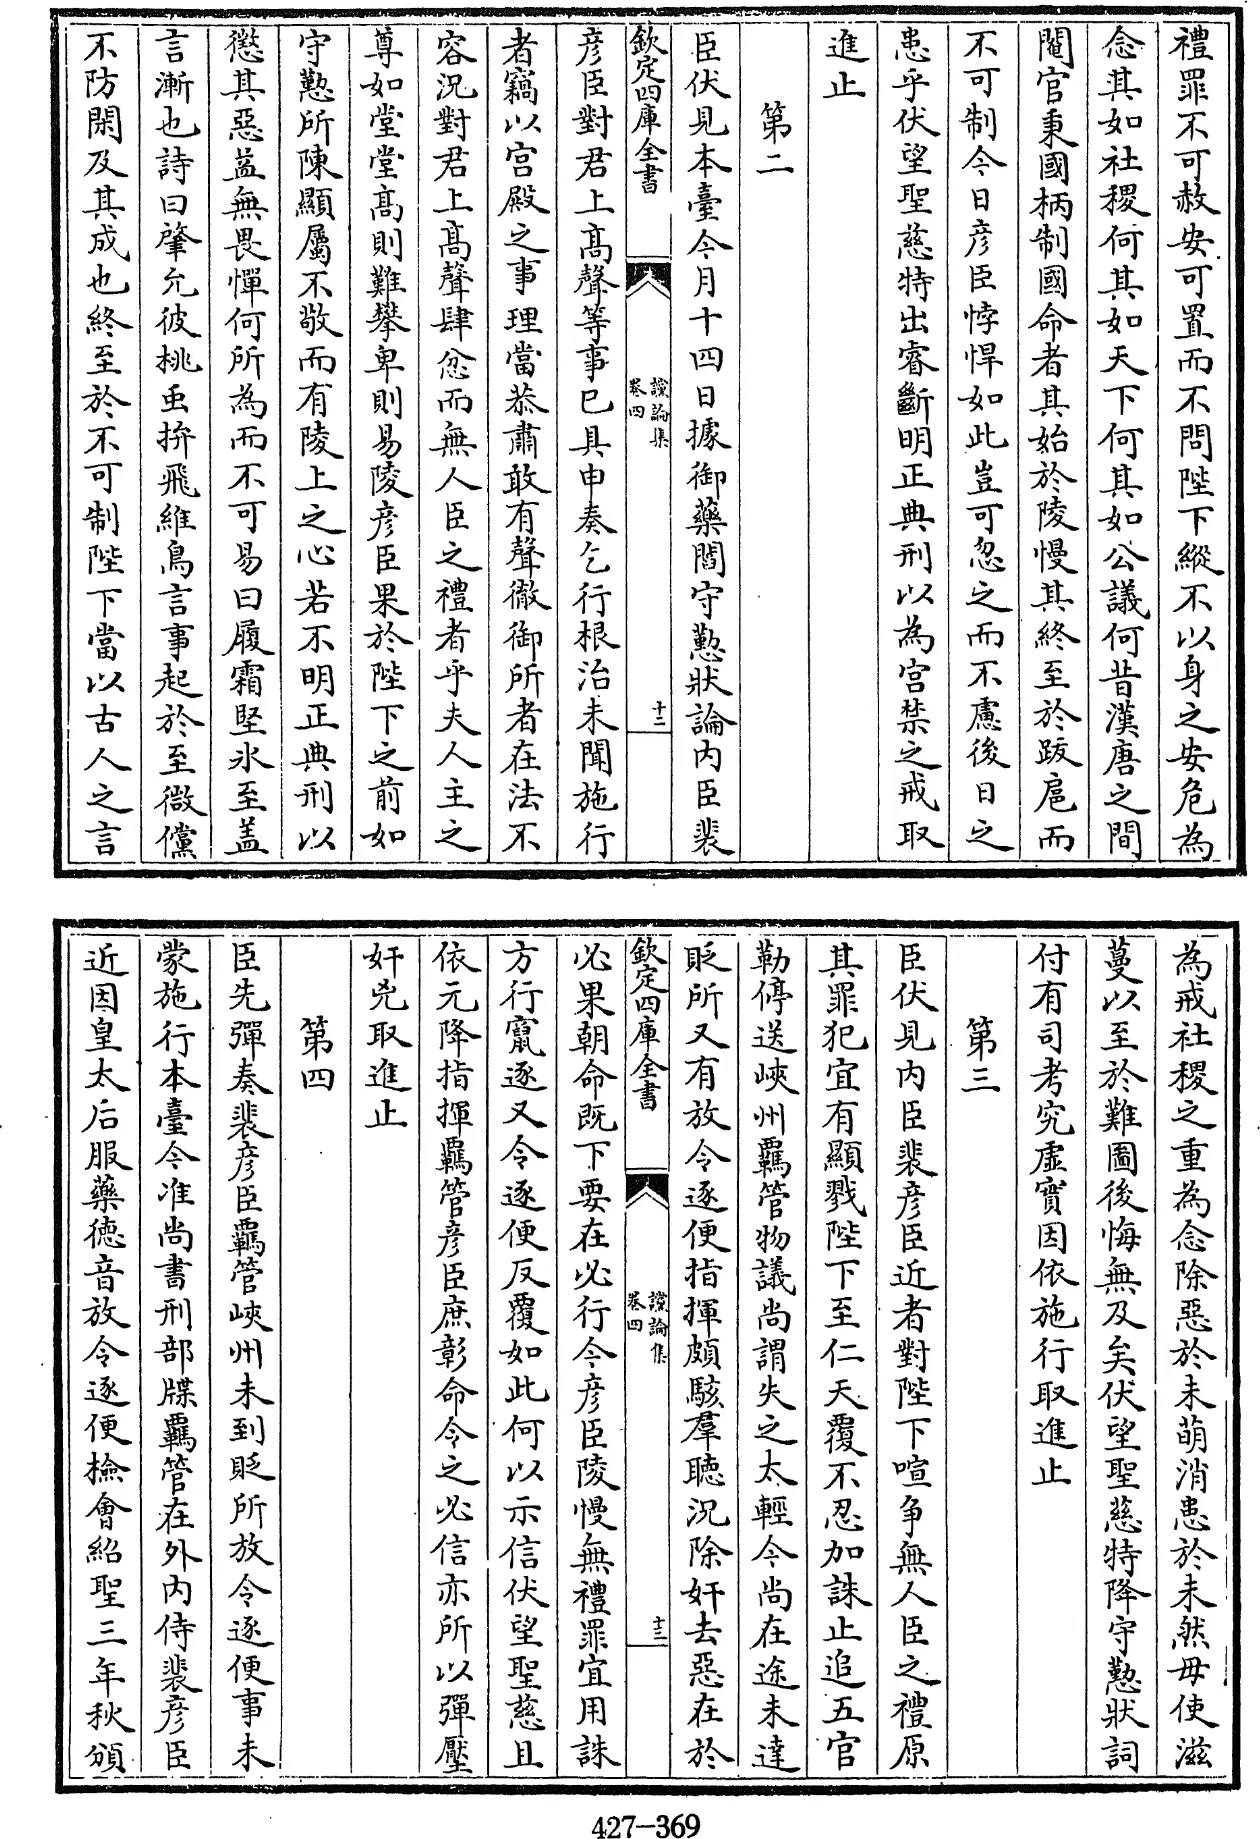 禮罪不可赦安可置而不問陛下縱不以身之安危為
念其如社稷何其如天下何其如公議何昔漢唐之間
閹官秉國柄制國命者其始於陵慢其終至於跋扈而
不可制今日彦臣悖悍如此豈可忽之而不慮後日之
患乎伏望聖慈特出睿斷明正典刑以為宫禁之戒取
進止
第二
臣伏見本臺今月十四日據御藥閻守懃狀論内臣裴
欽定四庫全書
讜論集
卷四
十二
彦臣對君上髙聲等事已具申奏乞行根治未聞施行
者竊以宫殿之事理當恭肅敢有聲徹御所者在法不
容況對君上髙聲肆忿而無人臣之禮者乎夫人主之
尊如堂堂髙則難攀卑則易陵彦臣果於陛下之前如
守懃所陳顯屬不敬而有陵上之心若不明正典刑以
懲其惡益無畏憚何所為而不可易曰履霜堅氷至盖
言漸也詩曰肇允彼桃虫拚飛維鳥言事起於至微儻
不防閑及其成也終至於不可制陛下當以古人之言
為戒社稷之重為念除惡於未萌消患於未然毋使滋
蔓以至於難圖後悔無及矣伏望聖慈特降守懃狀詞
付有司考究虚實因依施行取進止
第三
臣伏見内臣裴彦臣近者對陛下喧争無人臣之禮原
其罪犯宜有顯戮陛下至仁天覆不忍加誅止追五官
勒停送峽州羈管物議尚謂失之太輕今尚在途未達
貶所又有放令逐便指揮頗駭羣聴況除奸去惡在於
欽定四庫全書
讜論集
卷四
十三
必果朝命既下要在必行今彦臣陵慢無禮罪宜用誅
方行竄逐又令逐便反覆如此何以示信伏望聖慈且
依元降指揮羈管彦臣庶彰命令之必信亦所以彈壓
奸兇取進止
第四
臣先彈奏裴彦臣羈管峽州未到貶所放令逐便事未
蒙施行本臺今准尚書刑部牒羈管在外内侍裴彦臣
近因皇太后服藥德音放令逐便撿會紹聖三年秋頒
427-369